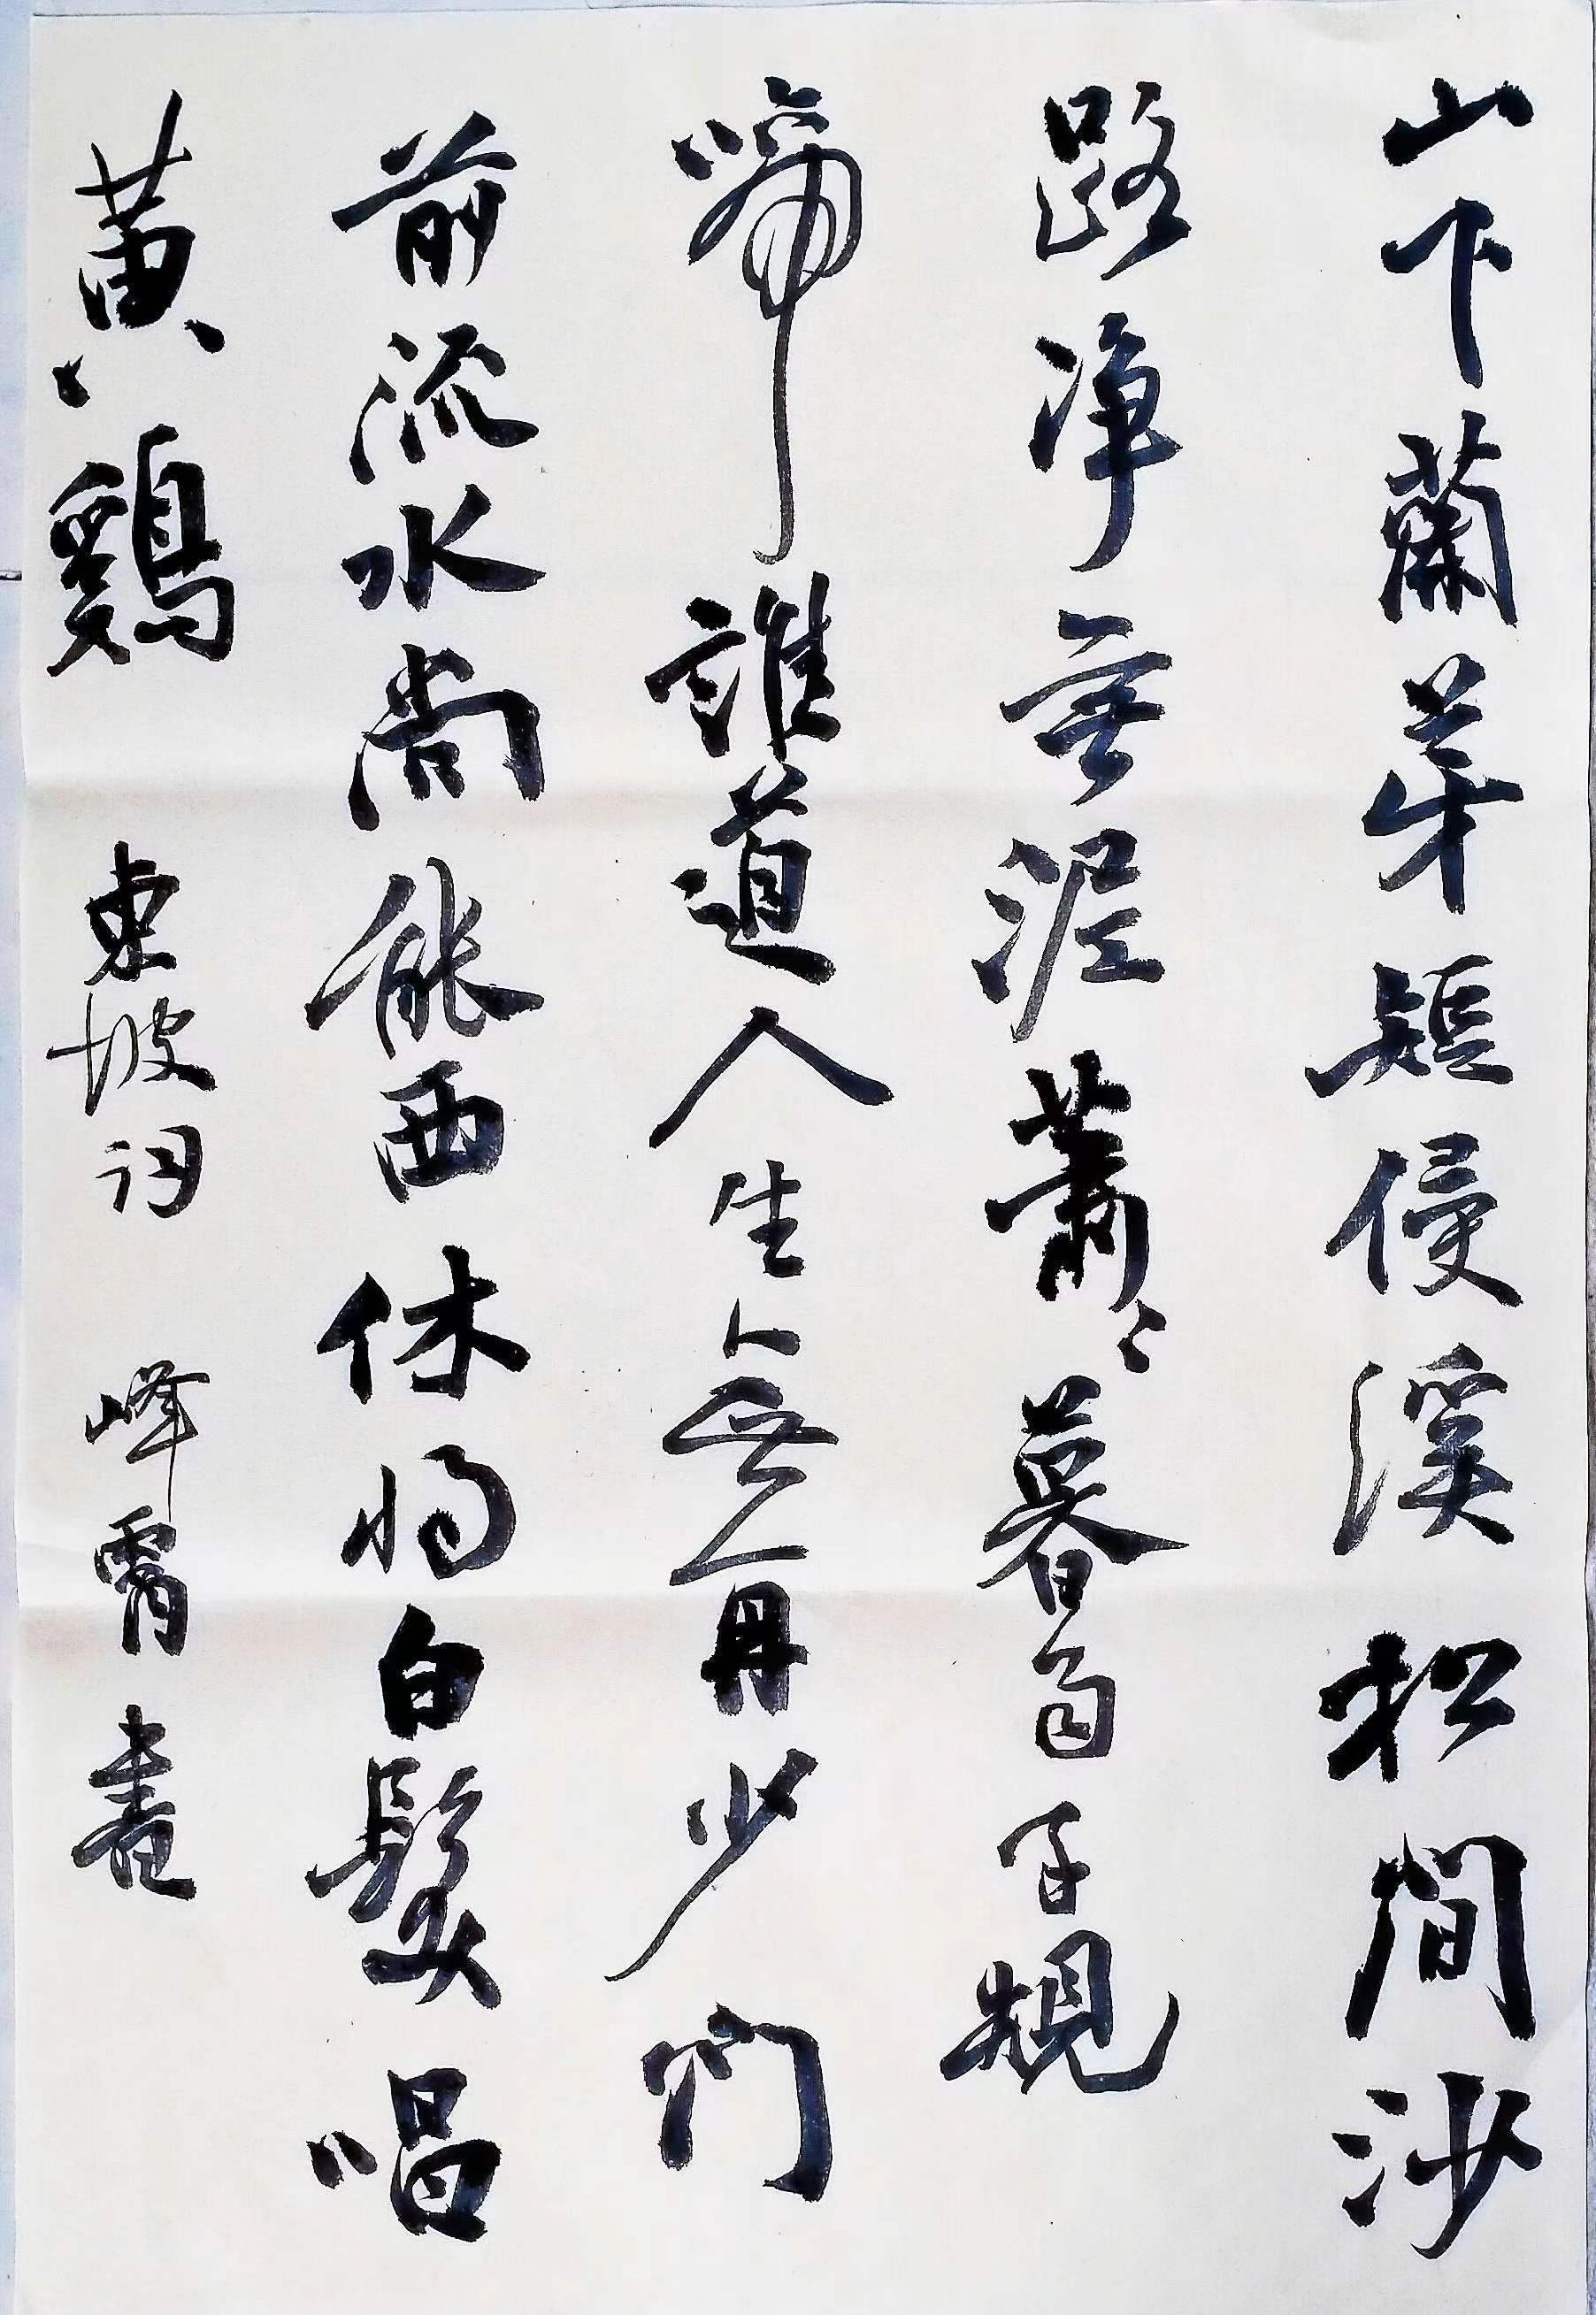 山下蘭芽短侵溪松間沙
路净無泥蕭〻暮雨子規
啼誰道人生無再少門
前流水尚能西休將白髮唱
黄鷄 東坡词 峰霄書